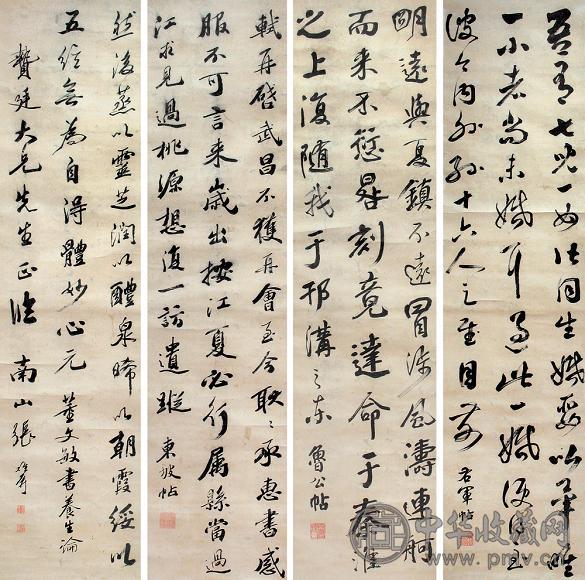 吾有七兒一女皆同生婚娶以畢唯
一小者尚未婚耳過此一婚便得至
彼今內外孫十六人足慰目前 右軍帖
明遠與夏鎮不遠冒涉風濤連舸
而來不愆晷刻竟達命于秦淮
之上復隨我于邗溝之東 魯公帖
軾再啓武昌不獲再會至今耿〻承惠書感
服不可言來歲出按江夏必行屬縣當過
江求見過桃源想復一訪遺蹤 東坡帖
然後蒸以靈芝潤以醴泉晞以朝霞綏以
五絃無為自得體妙心元 董文敏書養生論
贊廷大兄先生正臨 南山張維屏
中华收藏网